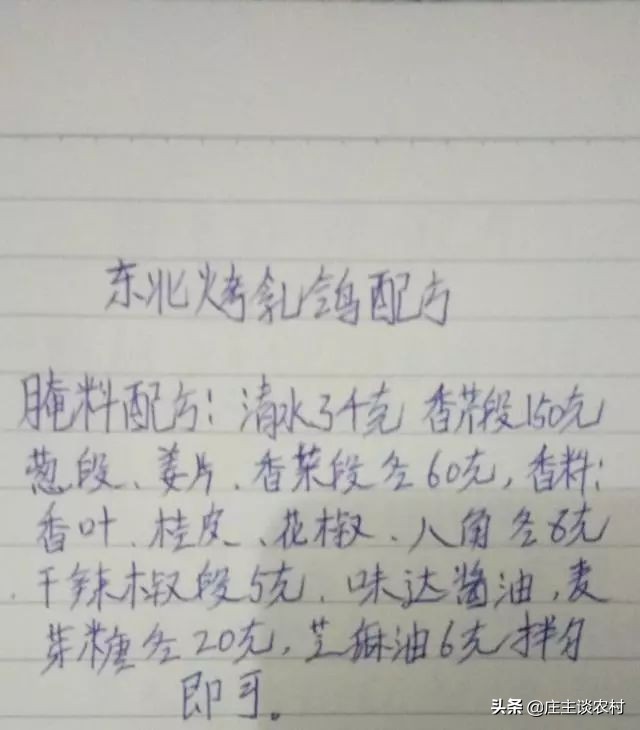 东北烤乳鸽配方
腌料配方：清水3千克 香芹段150克
葱段、姜片、香菜段各60克，香料：
香叶、桂皮、花椒、八角各8克
干辣椒段5克、味达酱油，麦
芽糖各20克，芝麻油6克拌匀
即可。
头条 @庄主谈农村